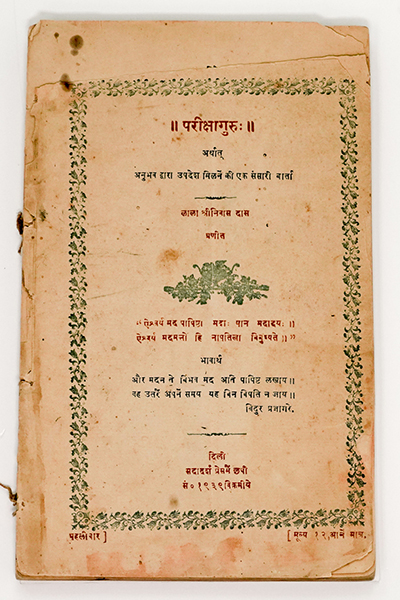 ॥ परीक्षागुरुः ॥
अर्थात्
अनुभव द्वारा उपदेश मिलनें की एक संसारी वार्ता
लाला श्रीनिवास दास
प्रणीत
“ऐश्वर्य मद पापिष्टा मदाः पान मदादयः ॥
ऐश्वर्य मदमत्तो हि नापतित्वा विबुध्यते ॥”
भावार्थ
और मदन ते बिभव मद अति पापिष्ट लखाय।
वह उतरें अपनें समय यह बिन बिपति न जाय।
विदुर प्रजागरे.
दिल्ली
सदादर्श प्रेसमें छपी
सं० १९३९ विक्रमीये
पहलीबार ]
[ मूल्य १२ आनें मात्र.